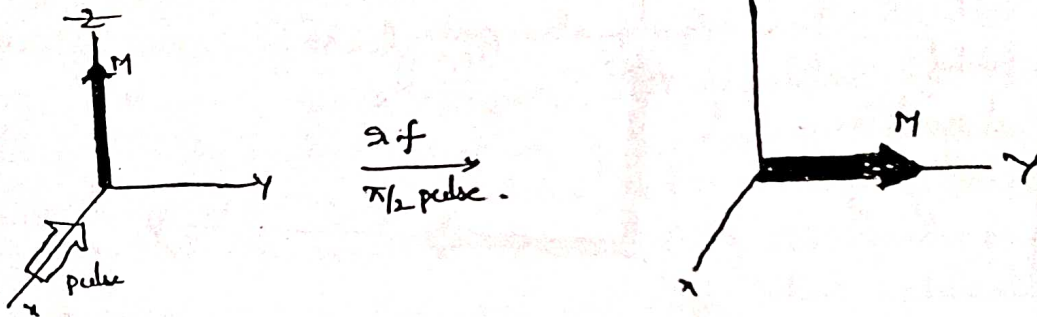 Z
M
Y
pulse
x
r.f
π/2 pulse.
M
Y
x